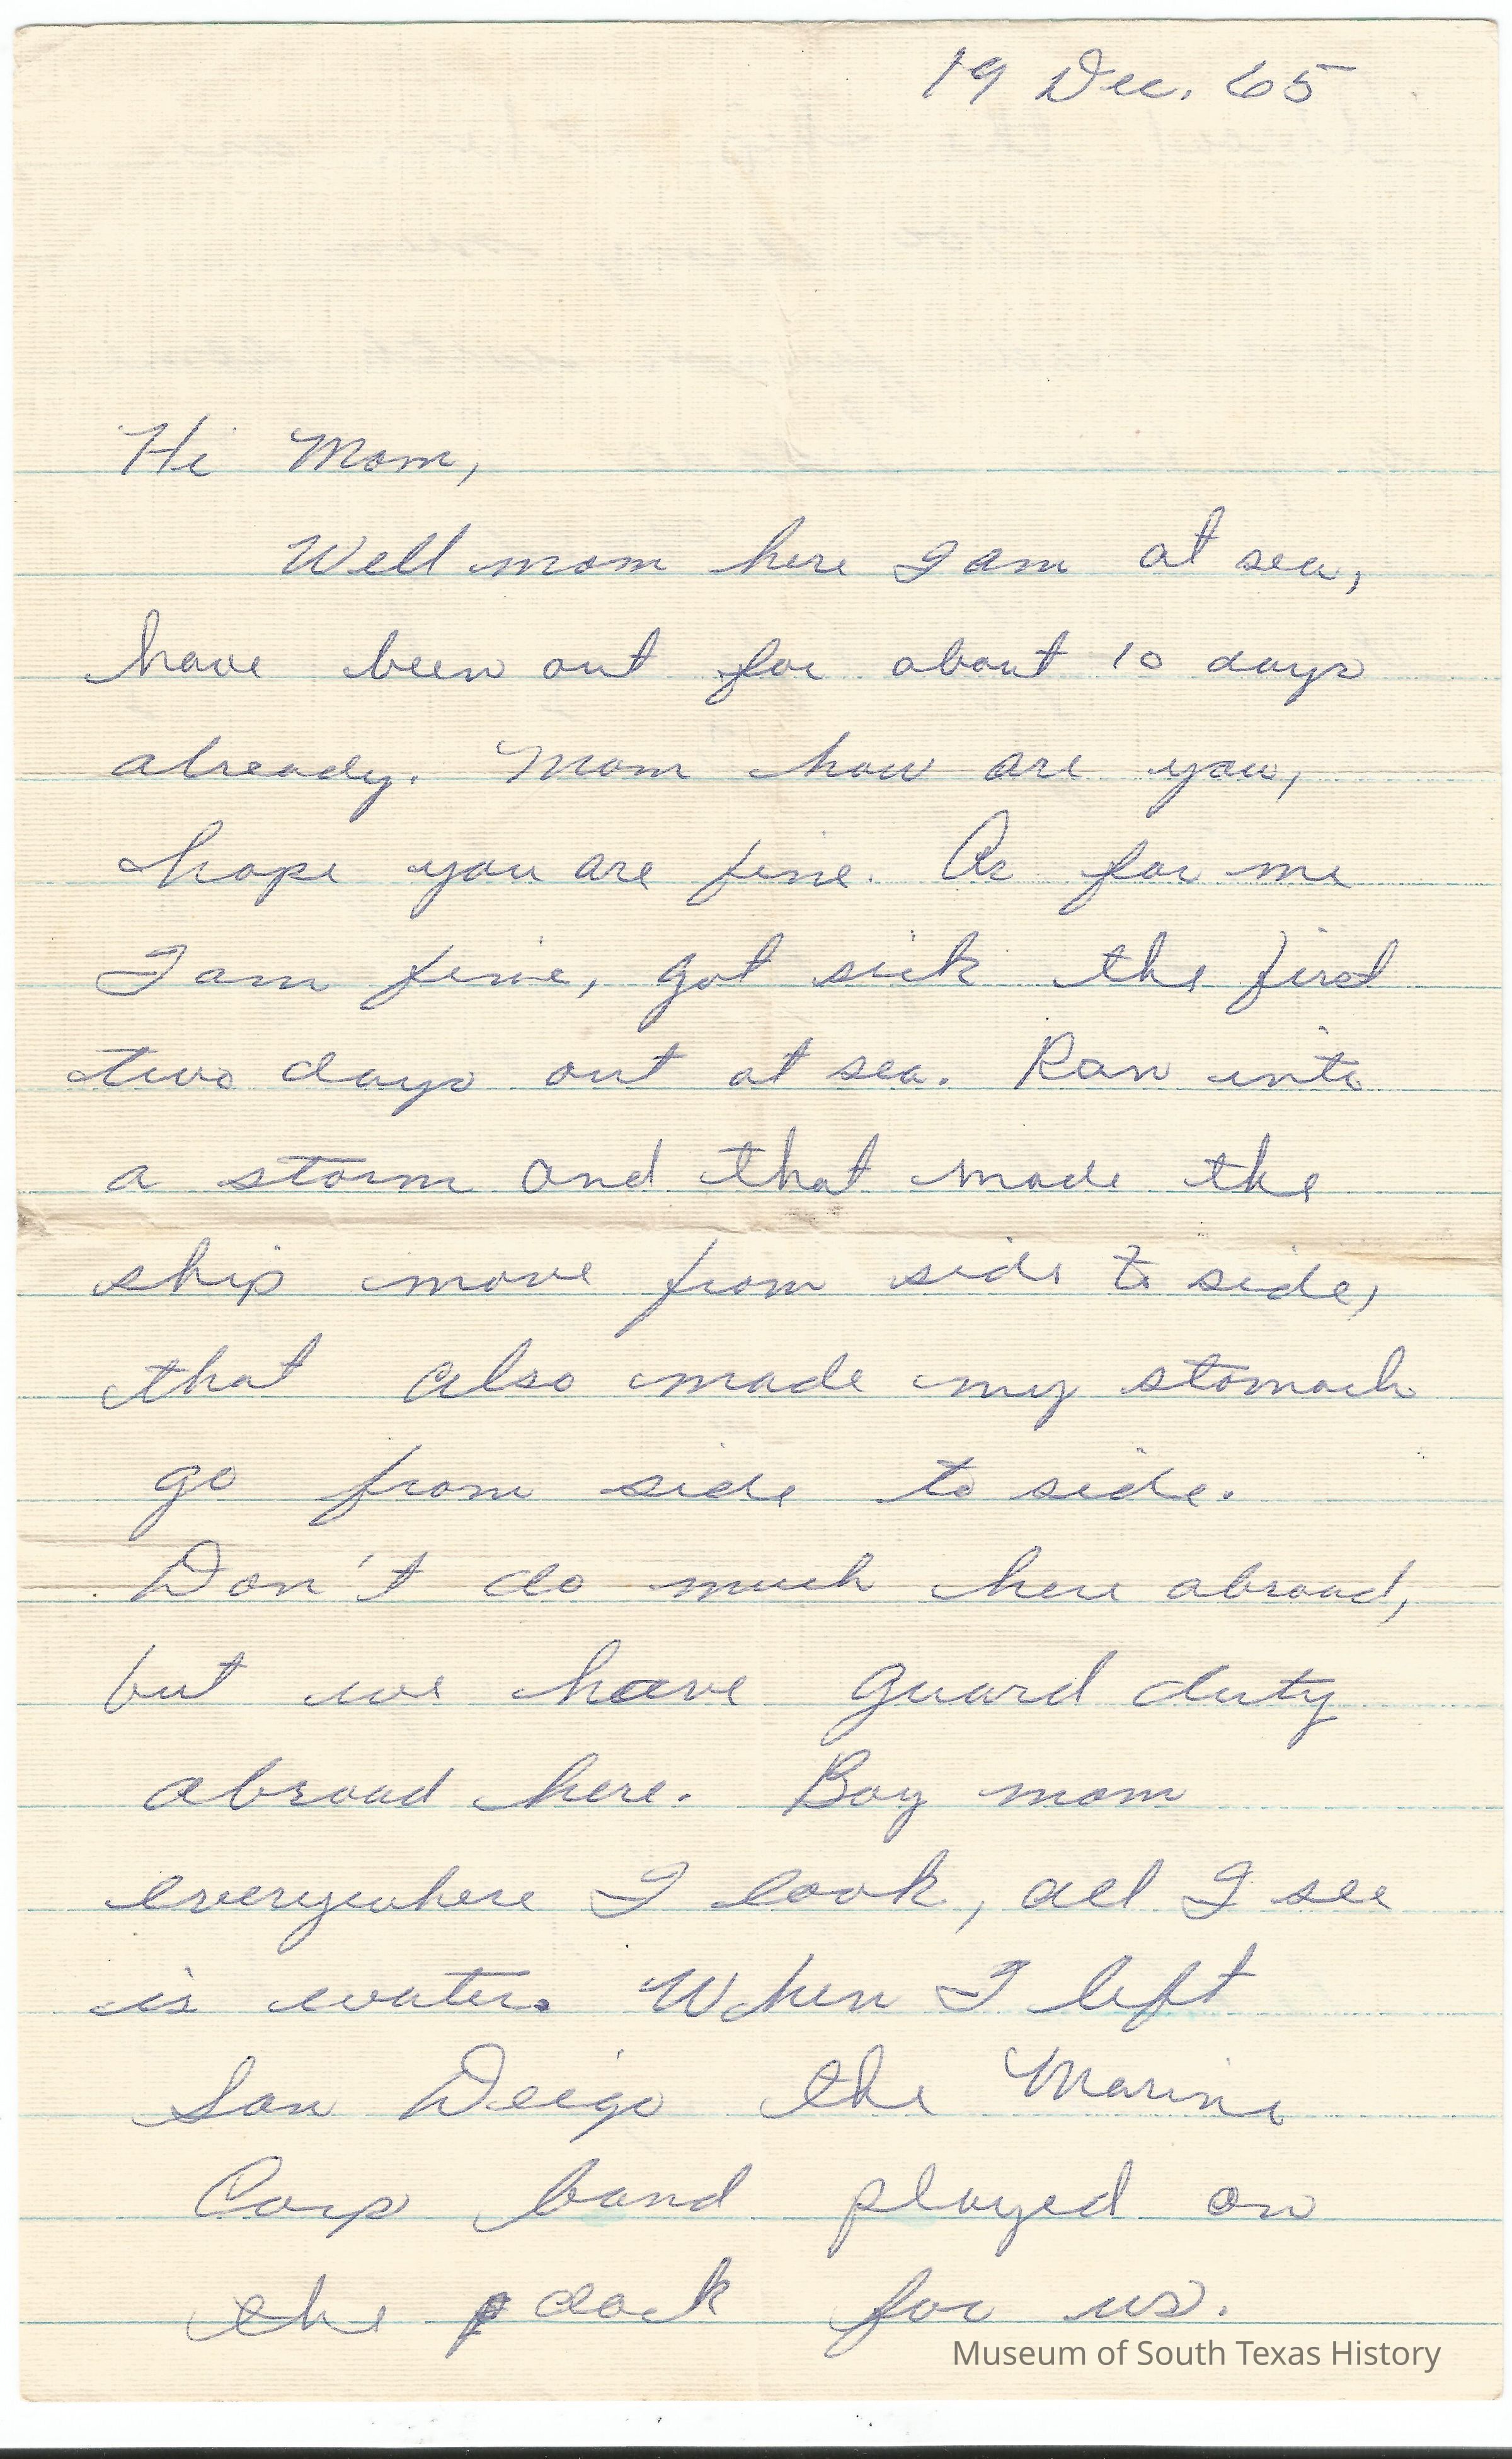 19 Dec. 65
Hi Mom,
Well mom here I am at sea,
have been out for about 10 days
already. Mom how are you,
hope you are fine. As for me
I am fine, got sick the first
two days out at sea. Ran into
a storm and that made the
ship move from side to side,
that also made my stomach
go from side to side.
Don't do much here abroad,
but we have guard duty
abroad here. Boy mom
everywhere I look, all I see
is water. When I left
San Deigo the Marine
Corp band played on
the dock for us.
Museum of South Texas History